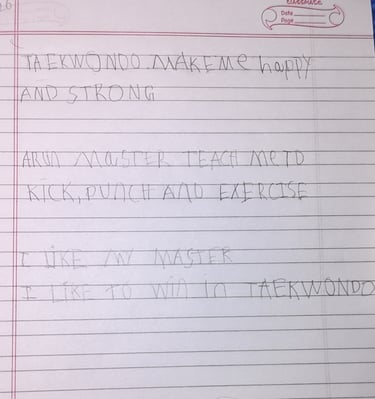 CLASSMATE
Date
Page
TAEKWONDO MAKE Me happy
AND STRONG
ARUN MaSTER TEACH Me TO
KICK, PUNCH AND EXERCISE
I LIKE MY MASTER
I LIKE TO WIn In TAEKWONDO